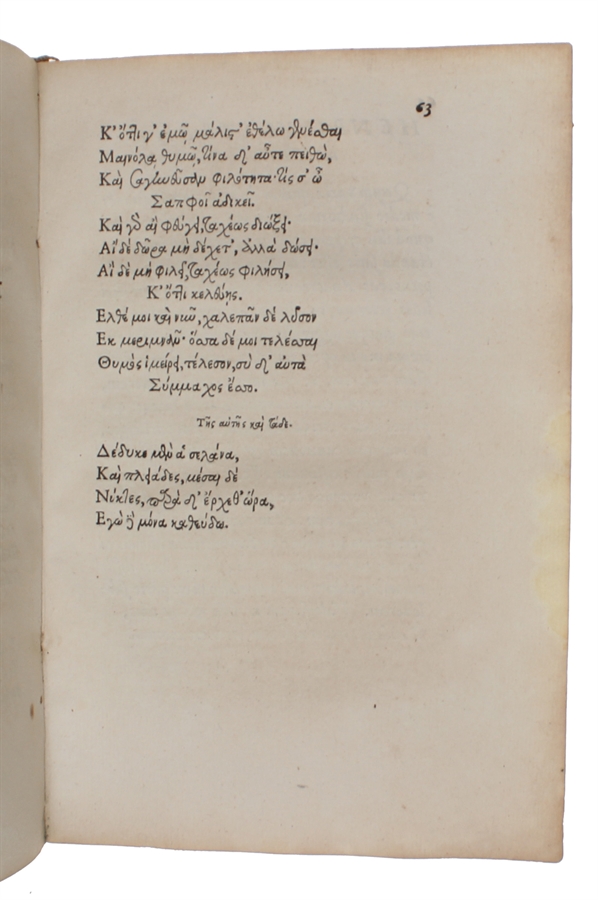 63
Κ' ὅττι γ' ἐμῷ μάλιστ' ἐθέλω γενέσθαι
Μαινόλᾳ θυμῷ, τίνα δ' αὖτε πείθω,
Καὶ σαγηνεῦσαν φιλότητα· τίς σ' ὦ
Σαπφοῖ ἀδικεῖ.
Καὶ γὰρ αἰ φεύγει, ταχέως διώξει·
Αἰ δὲ δῶρα μὴ δέχετ', ἀλλὰ δώσει·
Αἰ δὲ μὴ φιλεῖ, ταχέως φιλήσει,
Κ' ὅττι κελεύῃς.
Ελθέ μοι καὶ νῦν, χαλεπᾶν δὲ λῦσον
Εκ μεριμνᾶν· ὅσσα δέ μοι τελέσσαι
Θυμὸς ἱμείρει, τέλεσον, σὺ δ' αὐτὰ
Σύμμαχος ἔσσο.
Τῆς αὐτῆς καὶ τάδε.
Δέδυκε μὲν ἁ σελάνα,
Καὶ πλειάδες, μέσαι δὲ
Νύκτες, παρὰ δ' ἔρχεθ' ὥρα,
Εγὼ δὲ μόνα καθεύδω.